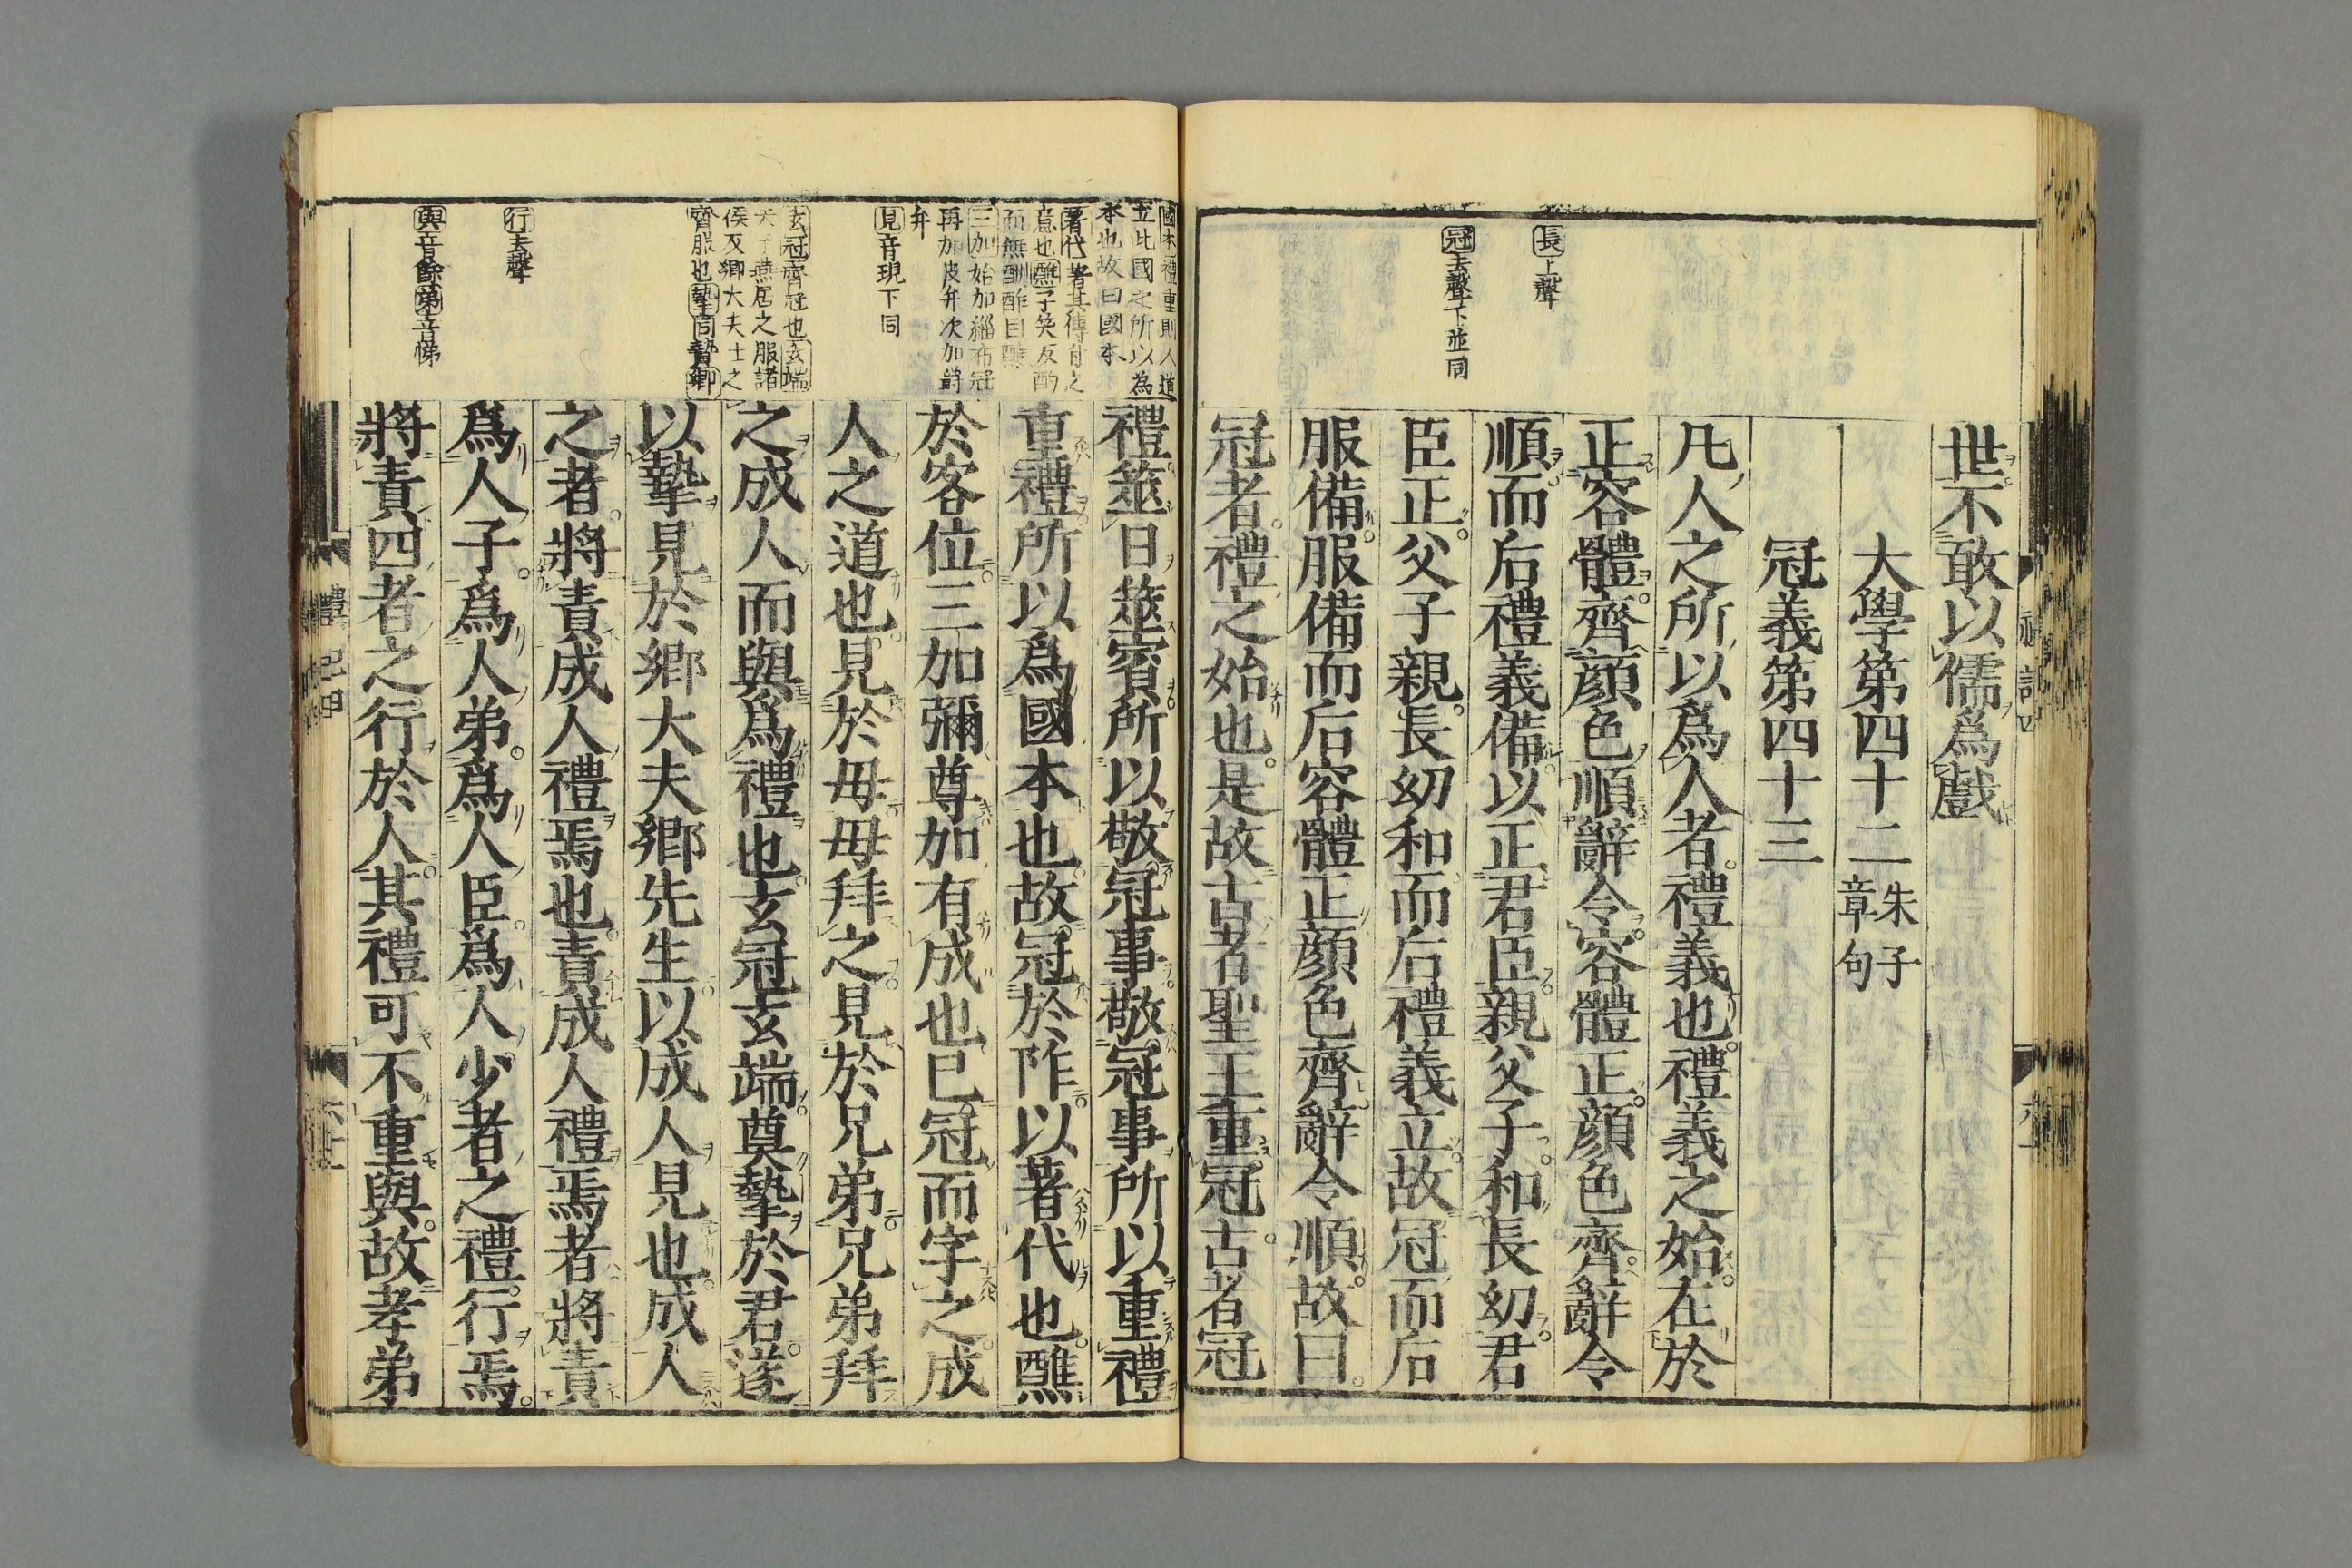 長上聲
冠去聲下並同
世不敢以儒爲戲
大學第四十二朱子章句
冠義第四十三
凡人之所以爲人者禮義也禮義之始在於
正容體齊顔色順辭令容體正顔色齊辭令
順而后禮義備以正君臣親父子和長幼君
臣正父子親長幼和而后禮義立故冠而后
服備服備而后容體正顔色齊辭令順故曰
冠者禮之始也是故古者聖王重冠古者冠
國本禮重則人道
立此國之所以為
本也故曰國本
著代著其傳付之
意也醮子笑反酌
而無酬酢曰醮
三加始加緇布冠
再加皮弁次加爵
弁
見音現下同
玄冠齊冠也玄端
天子燕居之服諸
侯及卿大夫士之
齊服也摯同贄鄉
行去聲
與音餘弟音悌
禮筮日筮賓所以敬冠事敬冠事所以重禮
重禮所以爲國本也故冠於阼以著代也醮
於客位三加彌尊加有成也已冠而字之成
人之道也見於母母拜之見於兄弟兄弟拜
之成人而與爲禮也玄冠玄端奠摯於君遂
以摯見於鄉大夫鄉先生以成人見也成人
之者將責成人禮焉也責成人禮焉者將責
爲人子爲人弟爲人臣爲人少者之禮行焉
將責四者之行於人其禮可不重與故孝弟
禮記四